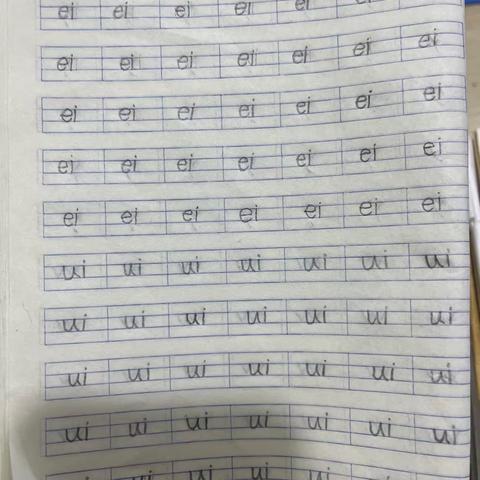 ei ei ei ei ei ei
ei ei ei ei ei ei ei
ei ei ei ei ei ei ei
ei ei ei ei ei ei ei
ei ei ei ei ei ei ei
ui ui ui ui ui ui ui
ui ui ui ui ui ui ui
ui ui ui ui ui ui ui
ui ui ui ui ui ui ui
ui ui ui ui